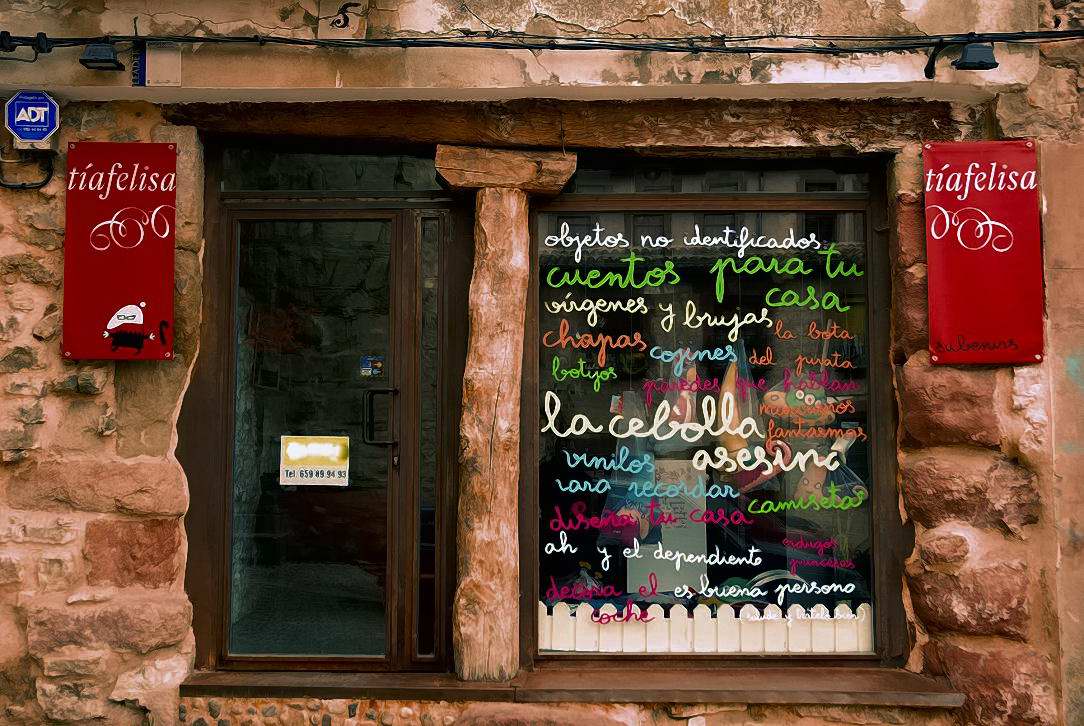 ADT
tíafelisa
Tel. 659 89 94 93
objetos no identificados
cuentos para tu
casa
vírgenes y brujas
la bota
chapas cojines del pirata
botijos
paredes que hablan
la cebolla
fantasmas
asesina
vinilos
para recordar
camisetas
diseña tu casa
ah y el dependiente
decora el es buena persona
coche
tíafelisa